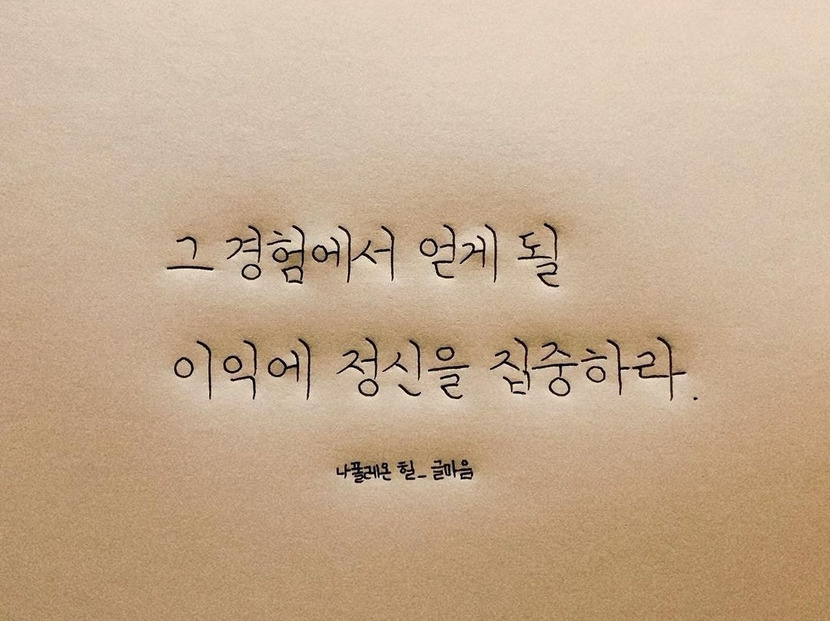 그 경험에서 얻게 될
이익에 정신을 집중하라.
나폴레온 힐_글마음